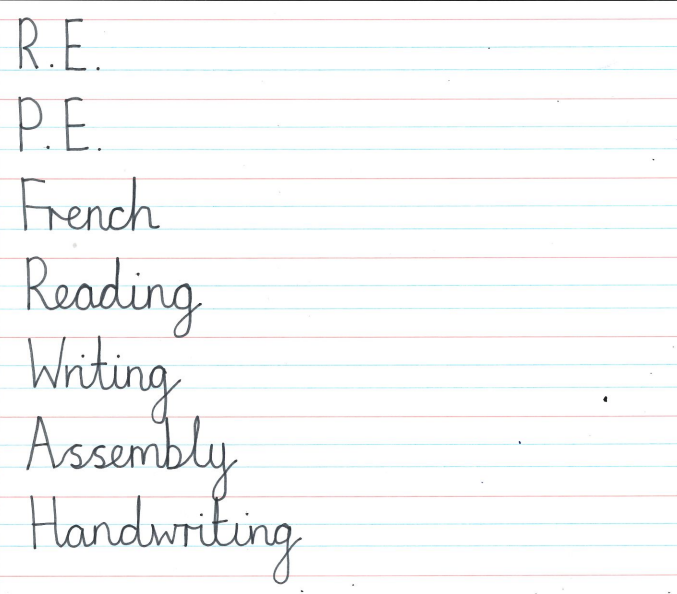 R.E.
P.E.
French
Reading
Writing
Assembly
Handwriting